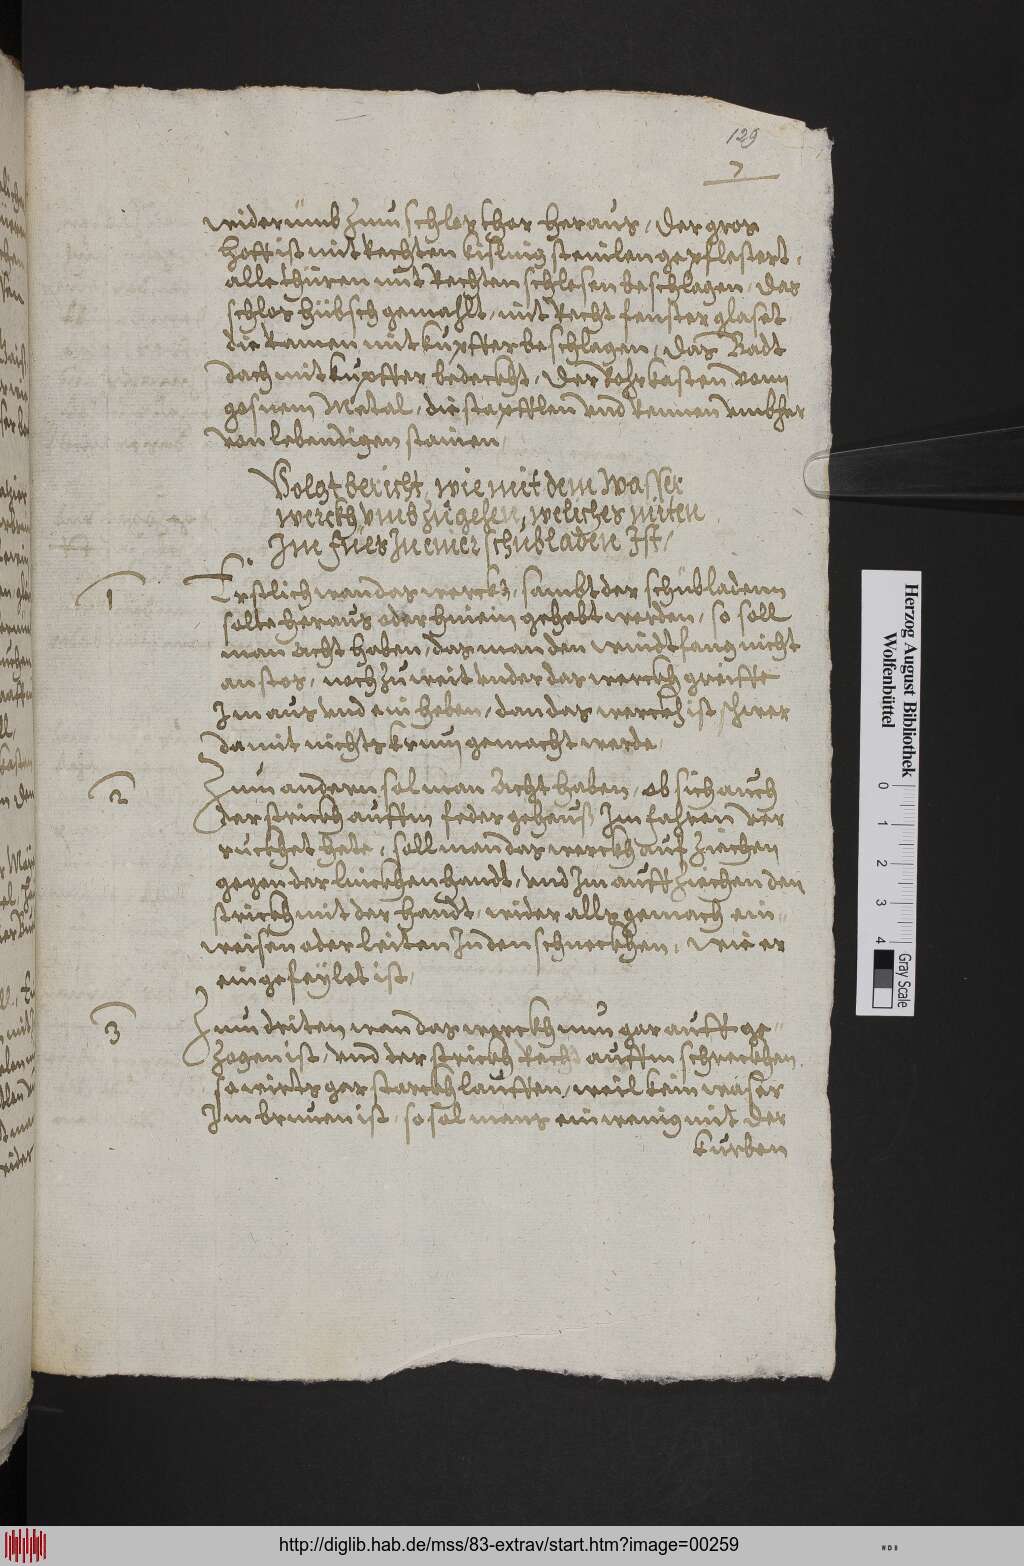 129
7
widerumb zum schlos thor heraus, der gros
hoff ist mit Rechten kisling steinlen gepflestert,
alle thüren mit Rechten schlesen beschlagen, das
schlos hübsch gemahlt, mit Recht fenster glaset
die Ramen mit kupffer beschlagen, das Badt
dach mit kupffer bedeckht, der Rohrkasten vom
gosnem Metal, die stapfflen vnd Rennen vmbher
von lebendigen stainen,
Volgt bericht, wie mit dem Wasser
werckh vmb zugehen, welches miten
Im fues In einer schubladen Ist,
1
Erstlich wan das werckh, sambt der schubladenn
solte heraus oder hinein gehebt werden, so soll
man Acht haben, das man den windtfang nicht
anstos, noch zu weit vnder das werckh greiffe
Im aus vnd ein heben, dan das werckh ist schwer
damit nichts krum gemacht werde,
2
Zum andern sol man Acht haben, ob sich auch
der strickh auffm feder geheuß Im fahren ver
ruckhet hete, soll man das werckh auf ziechen
gegen der linckhen handt, vnd Im auff ziechen den
strickh mit der handt, wider alls gemach ein-
weisen oder leiten In den schneckhen, wie er
eingefeylet ist,
3
Zum driten wan das werckh nun gar auff ge-
zogen ist, vnd der strickh Recht auffm schneckhen
so wirts gar starckh lauffen, weil kein waser
Im brunen ist, so sol mans ein wenig mit der
kurben
Herzog August Bibliothek
Wolfenbüttel
0 1 2 3 4
Gray Scale
http://diglib.hab.de/mss/83-extrav/start.htm?image=00259